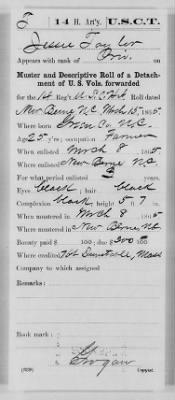 T 14 H. Art'y. U.S.C.T.
Jesse Taylor
Appears with rank of Priv.
Muster and Descriptive Roll of a Detach-
ment of U. S. Vols. forwarded
for the 14 Reg't U.S.C.H.A. Roll dated
New Berne N.C. Mch 15, 1865.
Where born Co. N.C.
Age 25 y'rs; occupation Farmer
When enlisted Mch 8, 1865.
Where enlisted New Berne N.C.
For what period enlisted 3 years.
Eyes black; hair black
Complexion black; height 5 ft. 7 in.
When mustered in Mch 8, 1865
Where mustered in New Berne N.C.
Bounty paid $ 100; due $ 300 100
Where credited Mass
Company to which assigned
Remarks:
Book mark:
Grogan
(339) Copyist.